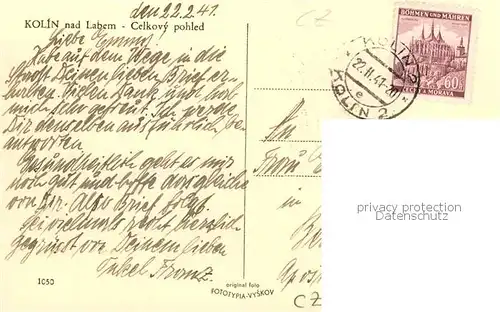 den 22.2.41.
CZ
KOLÍN nad Labem - Celkový pohled
Liebe Emmy!
Habe auf dem Wege in die
Stadt Deinen lieben Brief er-
halten. Vielen Dank und hab
mich sehr gefreut. Ich werde
Dir denselben ausführlich be-
antworten.
Gesundheitlich geht es mir
noch gut und hoffe dasgleiche
von Dir. Also Brief folgt.
Sei vielmals recht herzlich
gegrüsst von Deinem lieben
Onkel Franz.
1050
original foto
FOTOTYPIA-VYŠKOV
BÖHMEN UND MÄHREN
60
ČECHY A MORAVA
KOLÍN 2
22.II.41-20
e
KOLIN 2
An
Frau
in
CZ
privacy protection
Datenschutz